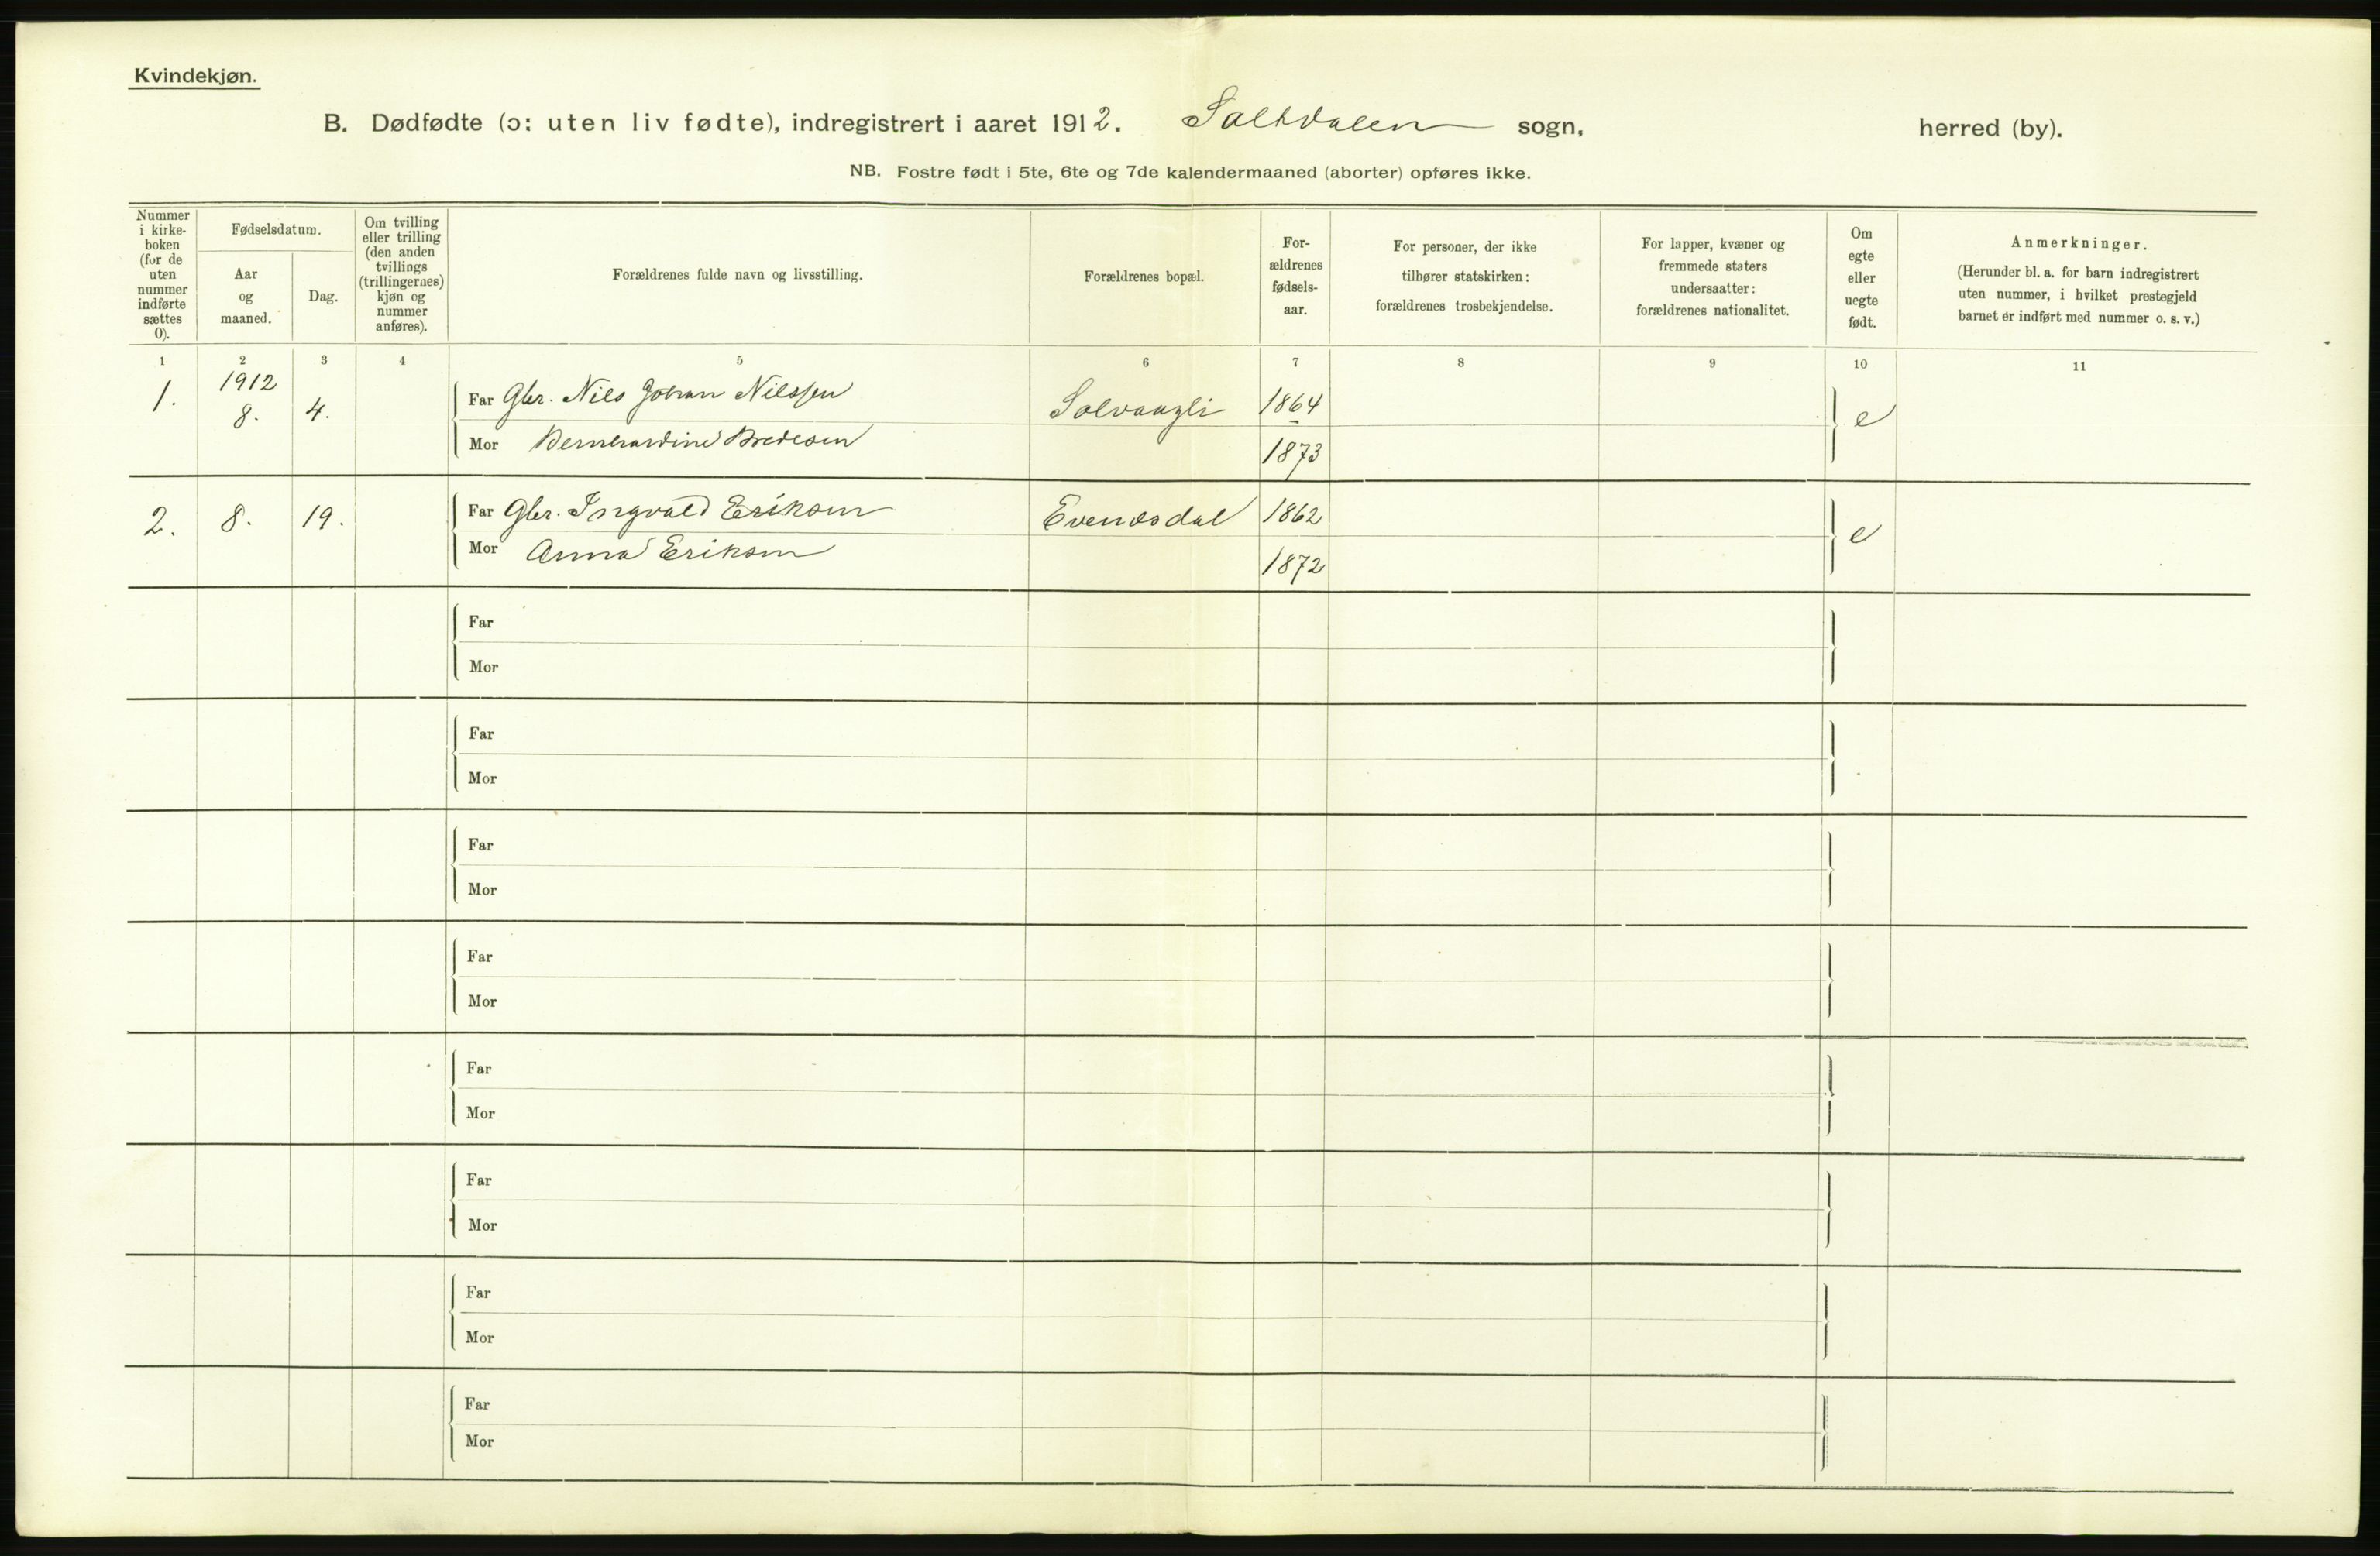 Kvindekjøn.
B. Dødfødte (ɔ: uten liv fødte), indregistrert i aaret 1912. Saltdalen sogn, herred (by).
NB. Fostre født i 5te, 6te og 7de kalendermaaned (aborter) opføres ikke.
Nummer
i kirke-
boken
(for de
uten
nummer
indførte
sættes
0).
Fødselsdatum.
Aar
og
maaned.
Dag.
Om tvilling
eller trilling
(den anden
tvillings
(trillingernes)
kjøn og
nummer
anføres).
Forældrenes fulde navn og livsstilling.
Forældrenes bopæl.
For-
ældrenes
fødsels-
aar.
For personer, der ikke
tilhører statskirken:
forældrenes trosbekjendelse.
For lapper, kvæner og
fremmede staters
undersaatter:
forældrenes nationalitet.
Om
egte
eller
uegte
født.
Anmerkninger.
(Herunder bl. a. for barn indregistrert
uten nummer, i hvilket prestegjeld
barnet er indført med nummer o. s. v.)
1 2 3 4 5 6 7 8 9 10 11
1. 1912 8. 4. Far Gbr. Nils Johan Nilssen 1864 e
Mor Bernhardine Bredesen 1873
2. 8. 19. Far Gbr. Ingvald Eriksen Evenesdal 1862 e
Mor Anna Eriksen 1872
Far
Mor
Far
Mor
Far
Mor
Far
Mor
Far
Mor
Far
Mor
Far
Mor
Far
Mor